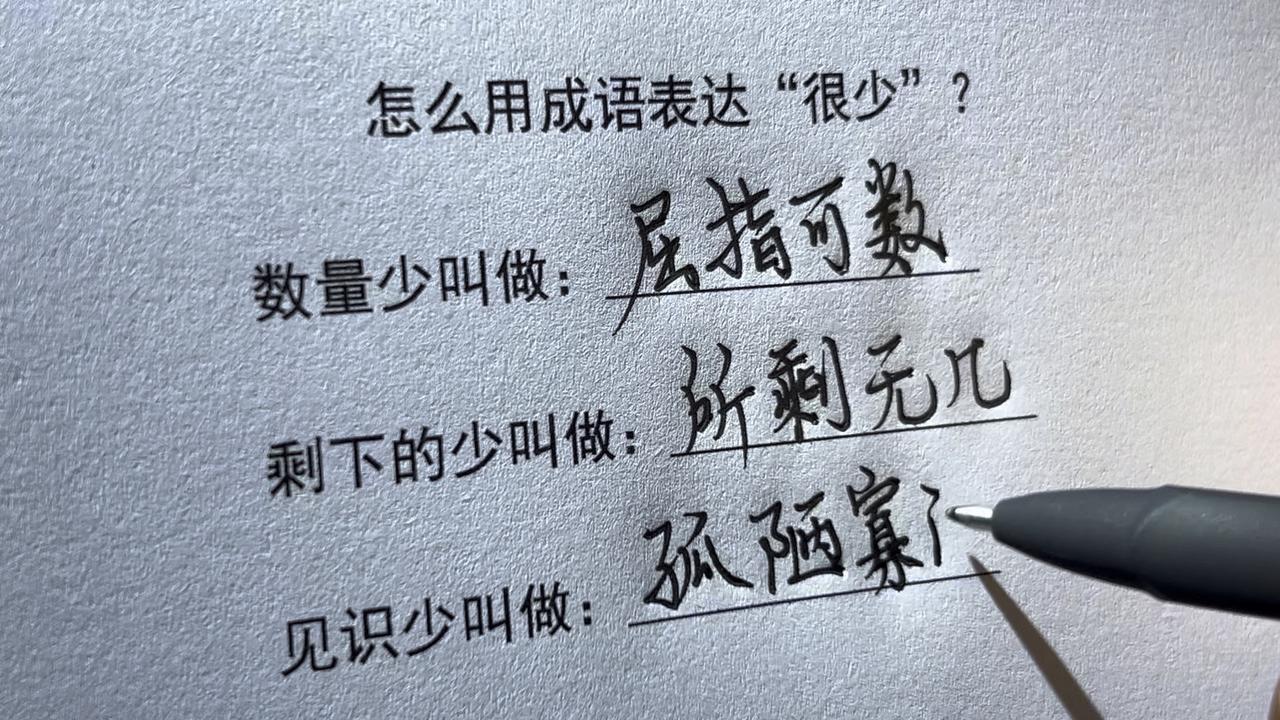 怎么用成语表达“很少”？
数量少叫做：屈指可数
剩下的少叫做：所剩无几
见识少叫做：孤陋寡